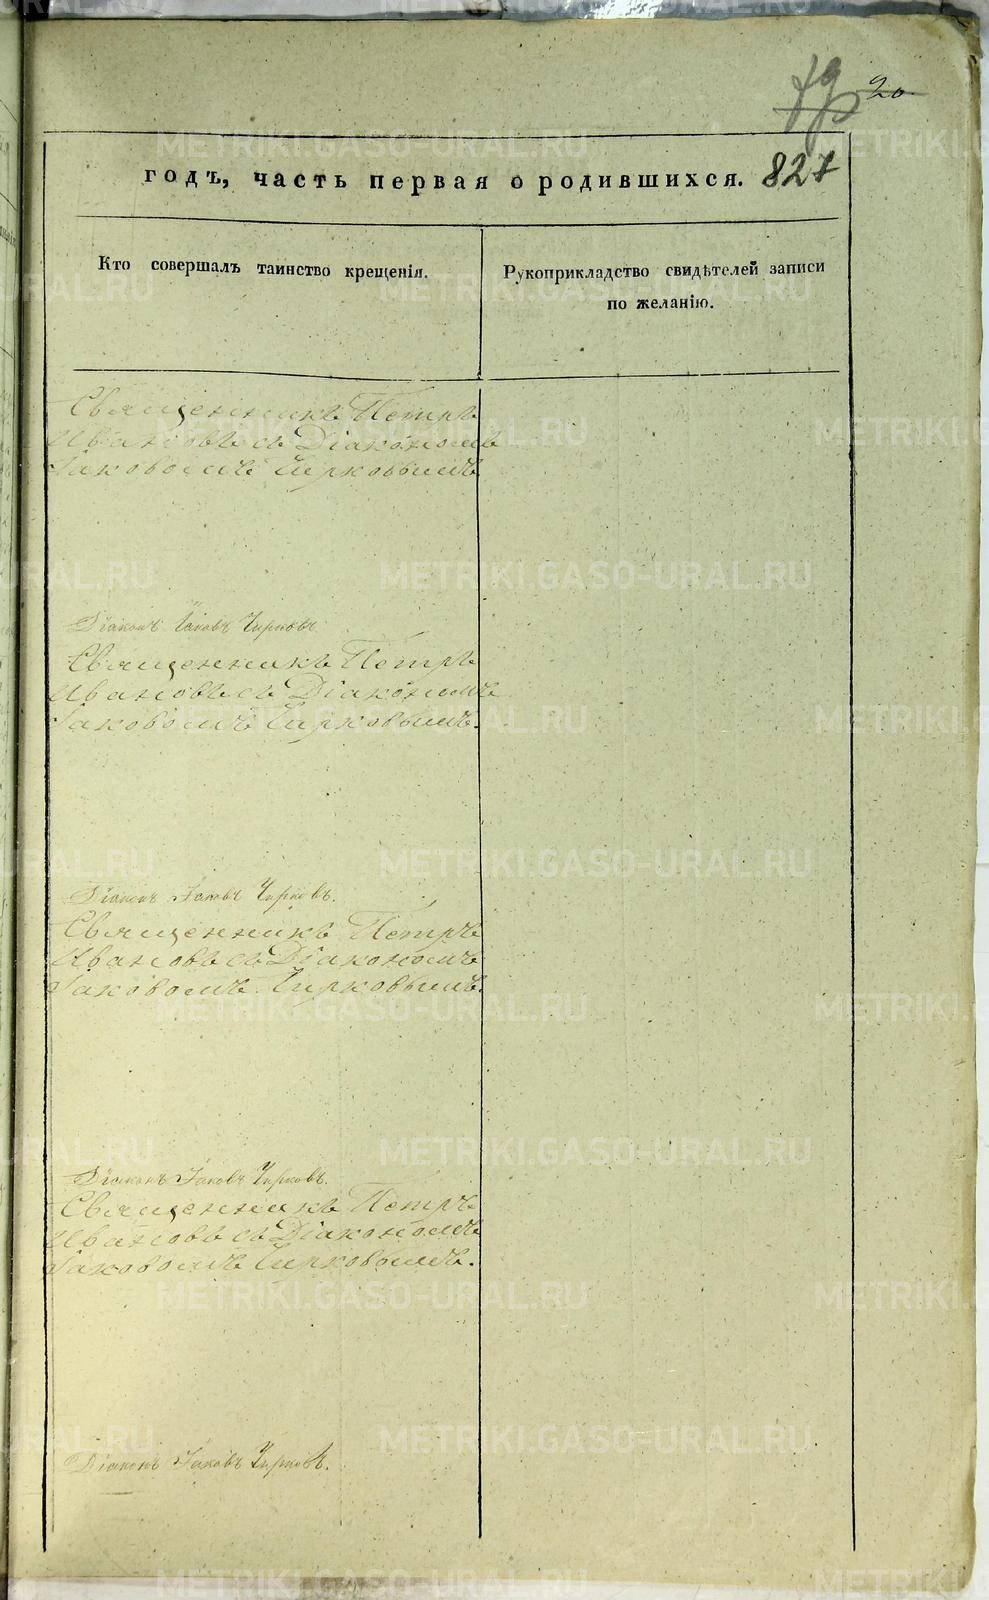 20
годъ, часть первая о родившихся. 827
Кто совершалъ таинство крещенія.
Рукоприкладство свидѣтелей записи
по желанію.
Священникъ Петръ
Ивановъ съ Діакономъ
Іаковомъ Чирковымъ
Діаконъ Іаковъ Чирковъ
Священникъ Петръ
Ивановъ съ Діакономъ
Іаковомъ Чирковымъ.
Діаконъ Іаковъ Чирковъ.
Священникъ Петръ
Ивановъ съ Діакономъ
Іаковомъ Чирковымъ.
Діаконъ Іаковъ Чирковъ.
Священникъ Петръ
Ивановъ съ Діакономъ
Іаковомъ Чирковымъ.
Діаконъ Іаковъ Чирковъ.
METRIKI.GASO-URAL.RU